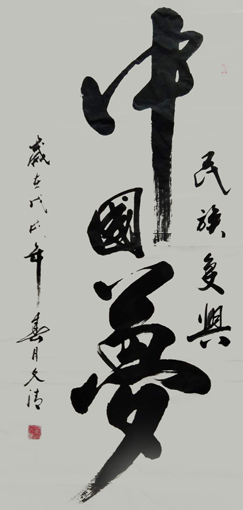 民族复興
中國夢
歲在戊戌年春月久清